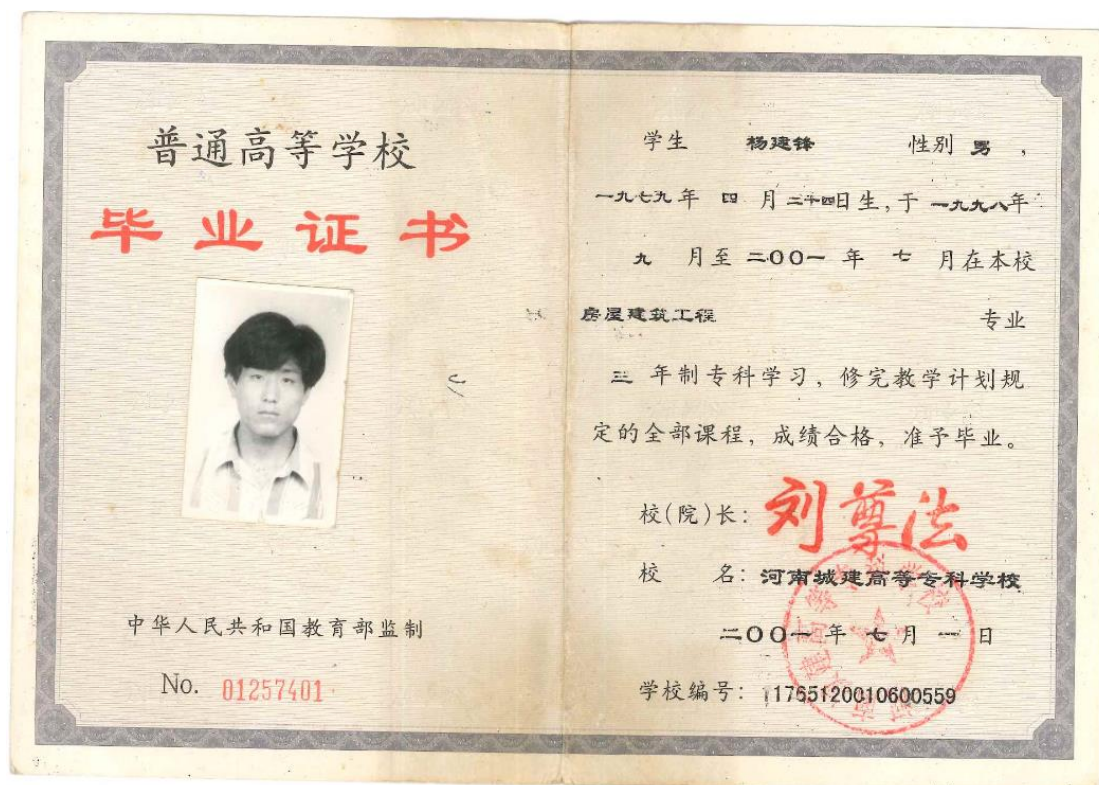 普通高等学校
毕业证书
中华人民共和国教育部监制
No. 01257401
学生 杨建锋 性别 男，
一九七九年 四 月 二十四日生，于 一九九八年
九 月至 二〇〇一 年 七 月在本校
房屋建筑工程 专业
三 年制专科学习，修完教学计划规
定的全部课程，成绩合格，准予毕业。
校(院)长：刘尊法
校 名：河南城建高等专科学校
二〇〇一 年 七 月 一 日
学校编号：11765120010600559